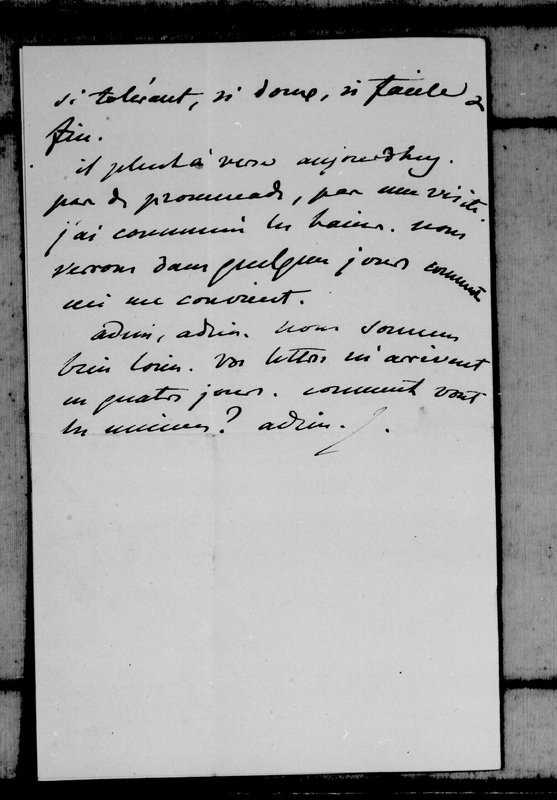 si tolérant, si doux, si facile &
fin.
il pleut à verse aujourdhuy.
pas de promenade, pas une visite.
j'ai commencé les bains. nous
verrons dans quelques jours comment
ils me convient.
adieu, adieu. nous sommes
bien loin. vos lettres m'arrivent
en quatre jours. comment vont
les miennes? adieu.